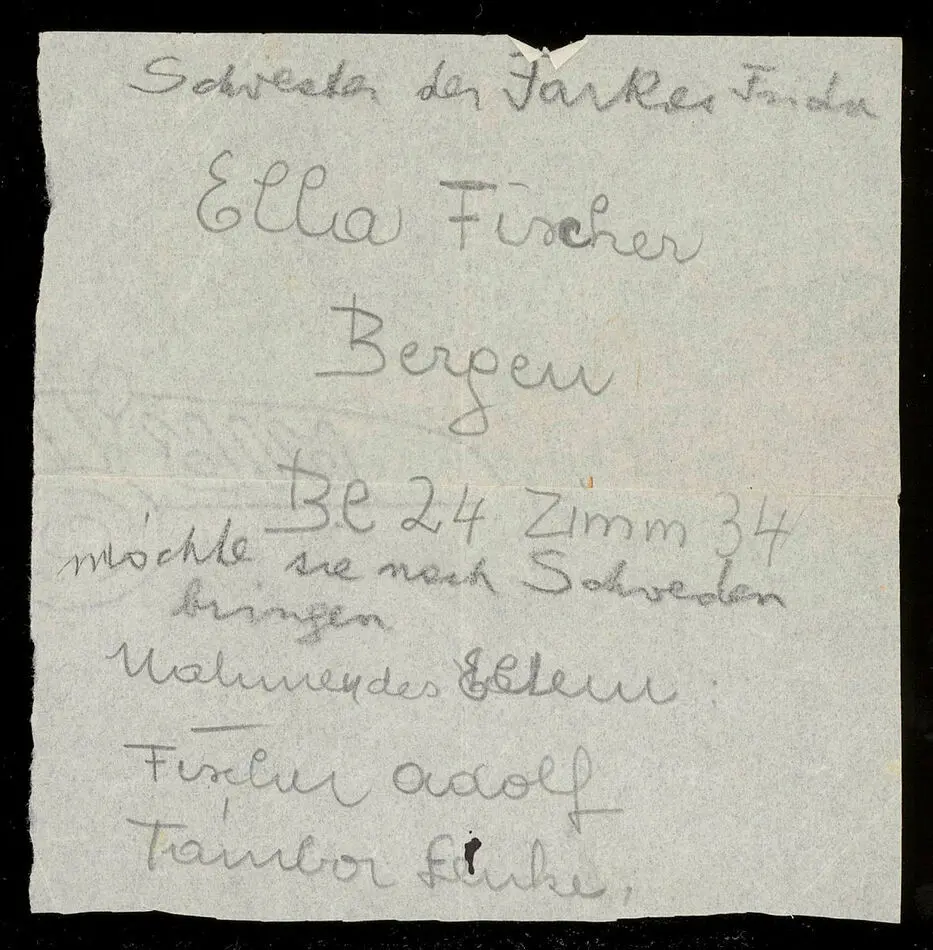 Schwester der Farkas Frida
Ella Fischer
Bergen
Bl 24 Zimm 34
möchte sie nach Schweden
bringen
Nahmen des Eltern :
Fischer Adolf
Tambor Lenke.